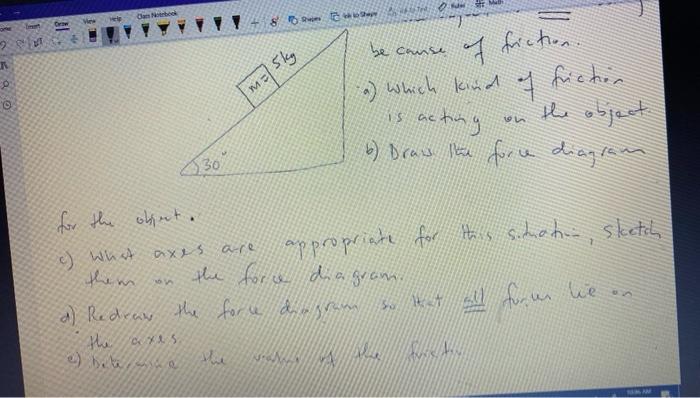 Insert Draw View Help Class Notebook
Shapes Ink to Shape Math
m = 5 kg
30°
because of friction.
a) Which kind of friction
is acting on the object.
b) Draw the force diagram
for the object.
c) What axes are appropriate for this situation, sketch
them on the force diagram.
d) Redraw the force diagram so that all forces lie on
the axes.
e) Determine the value of the frictio